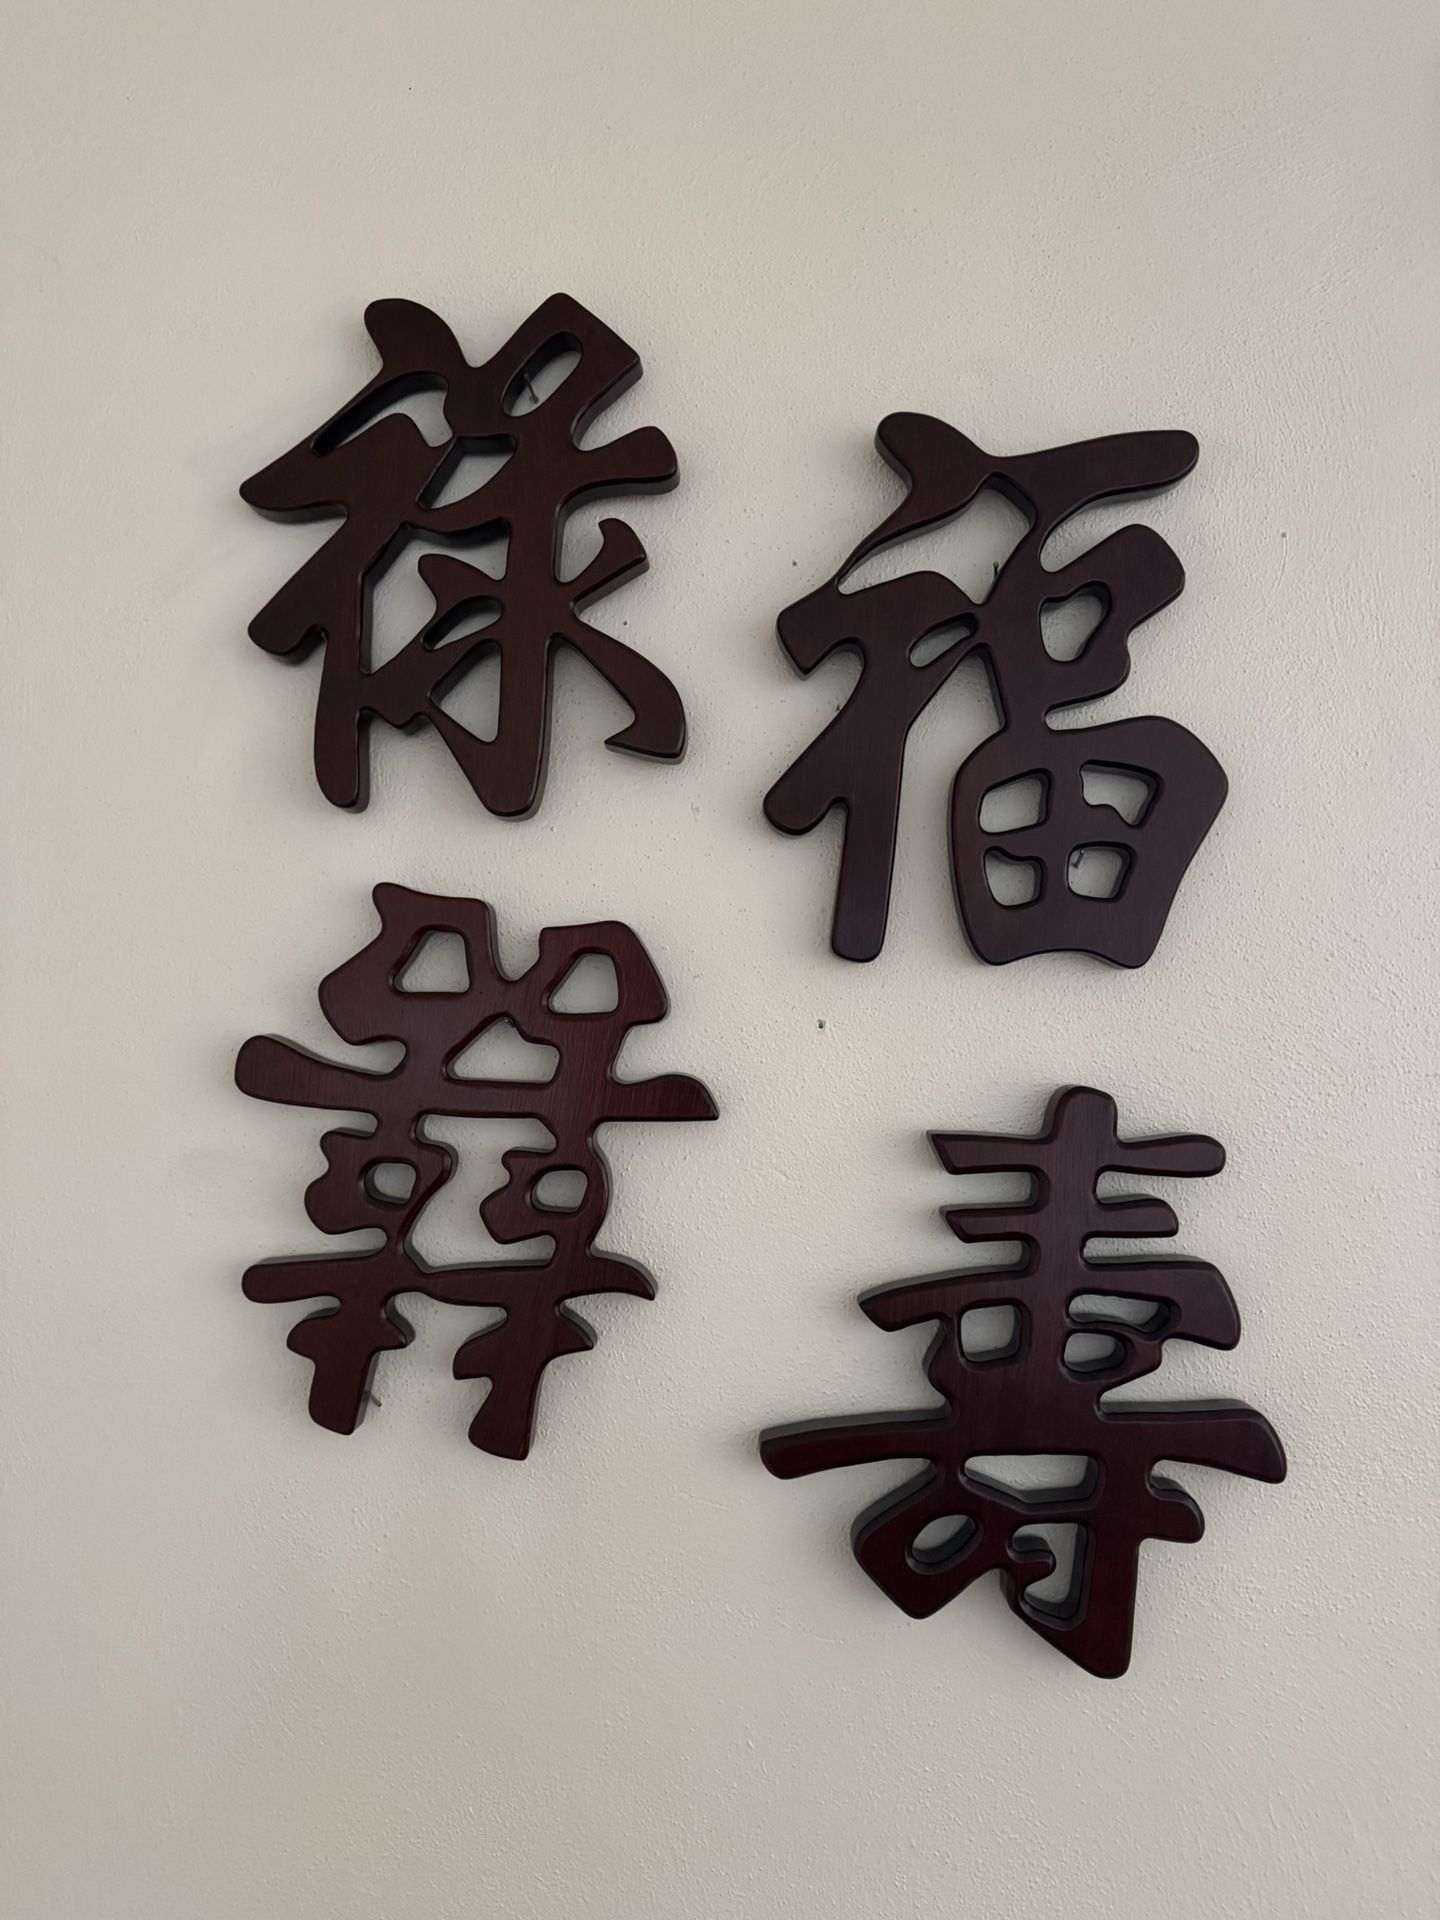 福
祿
壽
囍